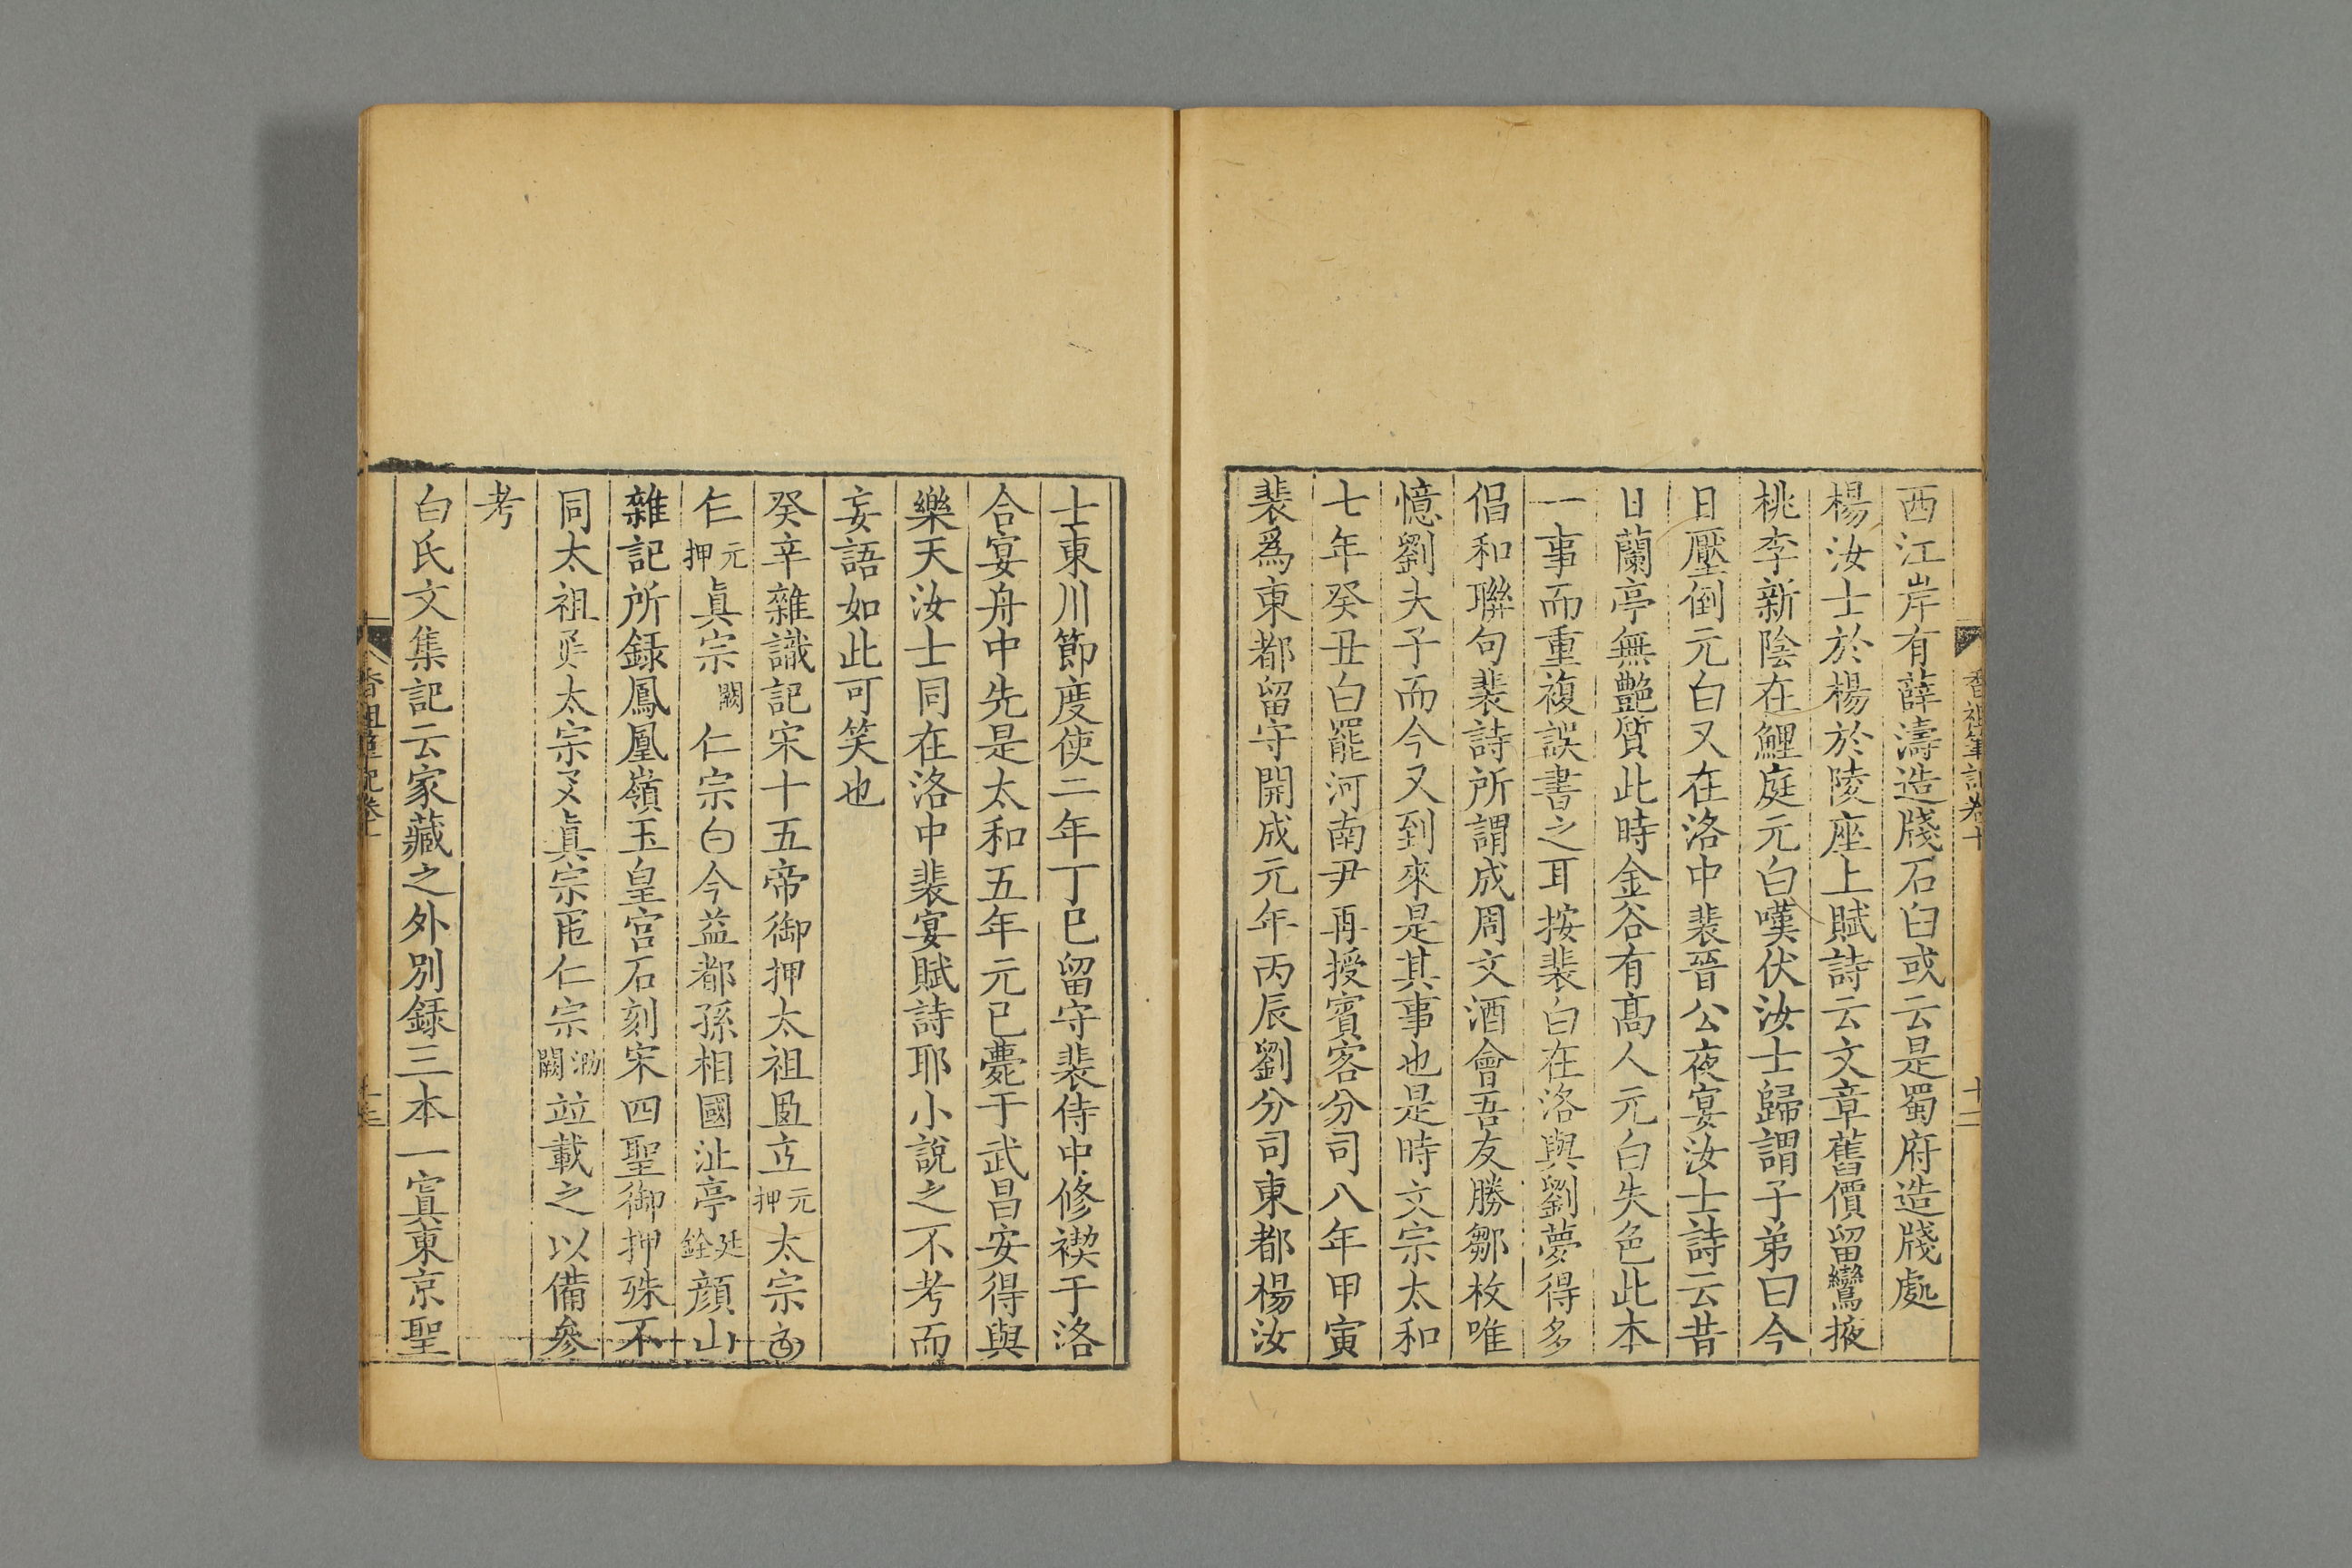 香祖筆記卷十
十二
西江岸有薛濤造牋石臼或云是蜀府造牋處
楊汝士於楊於陵座上賦詩云文章舊價留鸞掖
桃李新陰在鯉庭元白嘆伏汝士歸謂子弟曰今
日壓倒元白又在洛中裴晉公夜宴汝士詩云昔
日蘭亭無艷質此時金谷有高人元白失色此本
一事而重複誤書之耳按裴白在洛與劉夢得多
倡和聯句裴詩所謂成周文酒會吾友勝鄒枚唯
憶劉夫子而今又到來是其事也是時文宗太和
七年癸丑白罷河南尹再授賓客分司八年甲寅
裴爲東都留守開成元年丙辰劉分司東都楊汝
士東川節度使二年丁巳留守裴侍中修禊于洛
合宴舟中先是太和五年元已薨于武昌安得與
樂天汝士同在洛中裴宴賦詩耶小說之不考而
妄語如此可笑也
癸辛雜識記宋十五帝御押太祖 元押 太宗
元押 眞宗 闕 仁宗 今益都孫相國沚亭 廷銓 顔山
雜記所録鳳凰嶺玉皇宮石刻宋四聖御押殊不
同太祖 太宗 眞宗 仁宗 泐闕 竝載之以備參
考
白氏文集記云家藏之外別録三本一寘東京聖
香祖筆記卷十